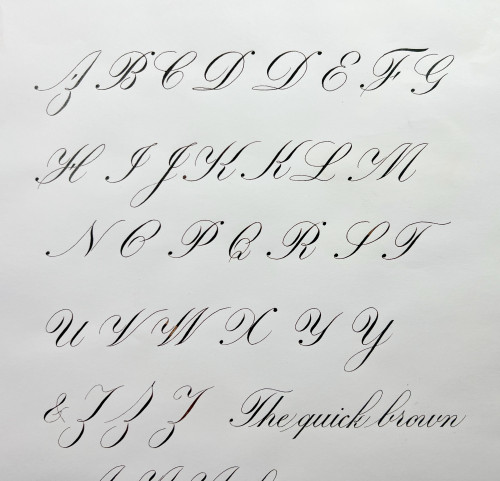 A B C D D E F G
H I J K K L M
N O P Q R S T
U V W X Y Y
& Z Z Z The quick brown